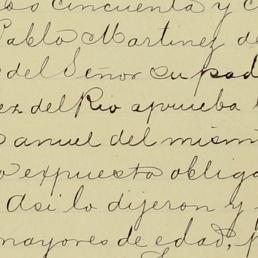 os cincuenta y c
Pablo Martinez de
del Señor su pad
ez del Rio aprueba
anuel del mism
o expuesto obliga
Asi lo dijeron y
mayores de edad, p